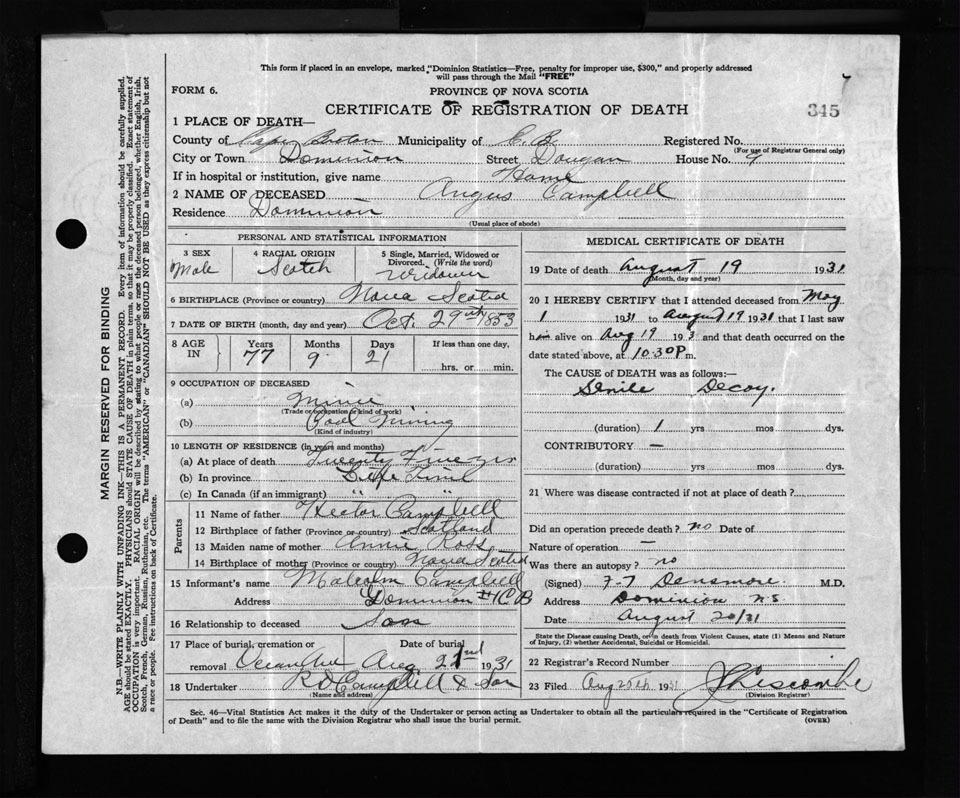 This form if placed in an envelope, marked "Dominion Statistics—Free, penalty for improper use, $300," and properly addressed
will pass through the Mail "FREE"
FORM 6.
PROVINCE OF NOVA SCOTIA
CERTIFICATE OF REGISTRATION OF DEATH
345
1 PLACE OF DEATH—
County of Cape Breton Municipality of C.B. Registered No.
(For use of Registrar General only)
City or Town Dominion Street Dougan House No. 9
If in hospital or institution, give name Home
2 NAME OF DECEASED Angus Campbell
Residence Dominion
(Usual place of abode)
PERSONAL AND STATISTICAL INFORMATION
3 SEX Male
4 RACIAL ORIGIN Scotch
5 Single, Married, Widowed or Divorced. (Write the word) Widower
6 BIRTHPLACE (Province or country) Nova Scotia
7 DATE OF BIRTH (month, day and year) Oct. 29th 1853
8 AGE IN Years 77 Months 9 Days 21 If less than one day, hrs. or min.
9 OCCUPATION OF DECEASED
(a) Miner
(Trade or occupation or kind of work)
(b) Coal Mining
(Kind of industry)
10 LENGTH OF RESIDENCE (in years and months)
(a) At place of death Twenty Five yrs
(b) In province Life Time
(c) In Canada (if an immigrant) " "
Parents
11 Name of father Hector Campbell
12 Birthplace of father (Province or country) Scotland
13 Maiden name of mother Annie Ross
14 Birthplace of mother (Province or country) Nova Scotia
15 Informant's name Malcolm Campbell
Address Dominion #1 CB
16 Relationship to deceased Son
17 Place of burial, cremation or removal Date of burial Aug 22nd 1931
18 Undertaker Campbell & Son
(Name and address)
MEDICAL CERTIFICATE OF DEATH
19 Date of death August 19 1931
(Month, day and year)
20 I HEREBY CERTIFY that I attended deceased from May
1 1931 to August 19 1931 that I last saw
him alive on Aug 19 193 and that death occurred on the
date stated above, at 10.30 P m.
The CAUSE of DEATH was as follows:—
Senile Decay.
(duration) 1 yrs mos dys.
CONTRIBUTORY —
(duration) yrs mos dys.
21 Where was disease contracted if not at place of death?
Did an operation precede death? no Date of
Nature of operation —
Was there an autopsy? no
(Signed) F. T. Densmore. M.D.
Address Dominion N.S.
Date August 20/31
State the Disease causing Death, or in death from Violent Causes, state (1) Means and Nature
of Injury, (2) whether Accidental, Suicidal or Homicidal.
22 Registrar's Record Number
23 Filed Aug 20th 1931
(Division Registrar)
Sec. 46—Vital Statistics Act makes it the duty of the Undertaker or person acting as Undertaker to obtain all the particulars required in the "Certificate of Registration
of Death" and to file the same with the Division Registrar who shall issue the burial permit.
(OVER)
MARGIN RESERVED FOR BINDING
N.B.—WRITE PLAINLY WITH UNFADING INK—THIS IS A PERMANENT RECORD. Every item of information should be carefully supplied.
AGE should be stated EXACTLY. PHYSICIANS should STATE CAUSE OF DEATH in plain terms, so that it may be properly classified. Exact statement of
OCCUPATION is very important. RACIAL ORIGIN will be described by stating to what people or race the deceased person belonged, whether English, Irish,
Scotch, French, German, Russian, Ruthenian, etc. The terms "AMERICAN" or "CANADIAN" SHOULD NOT BE USED as they express citizenship but not
a race or people. See instructions on back of Certificate.